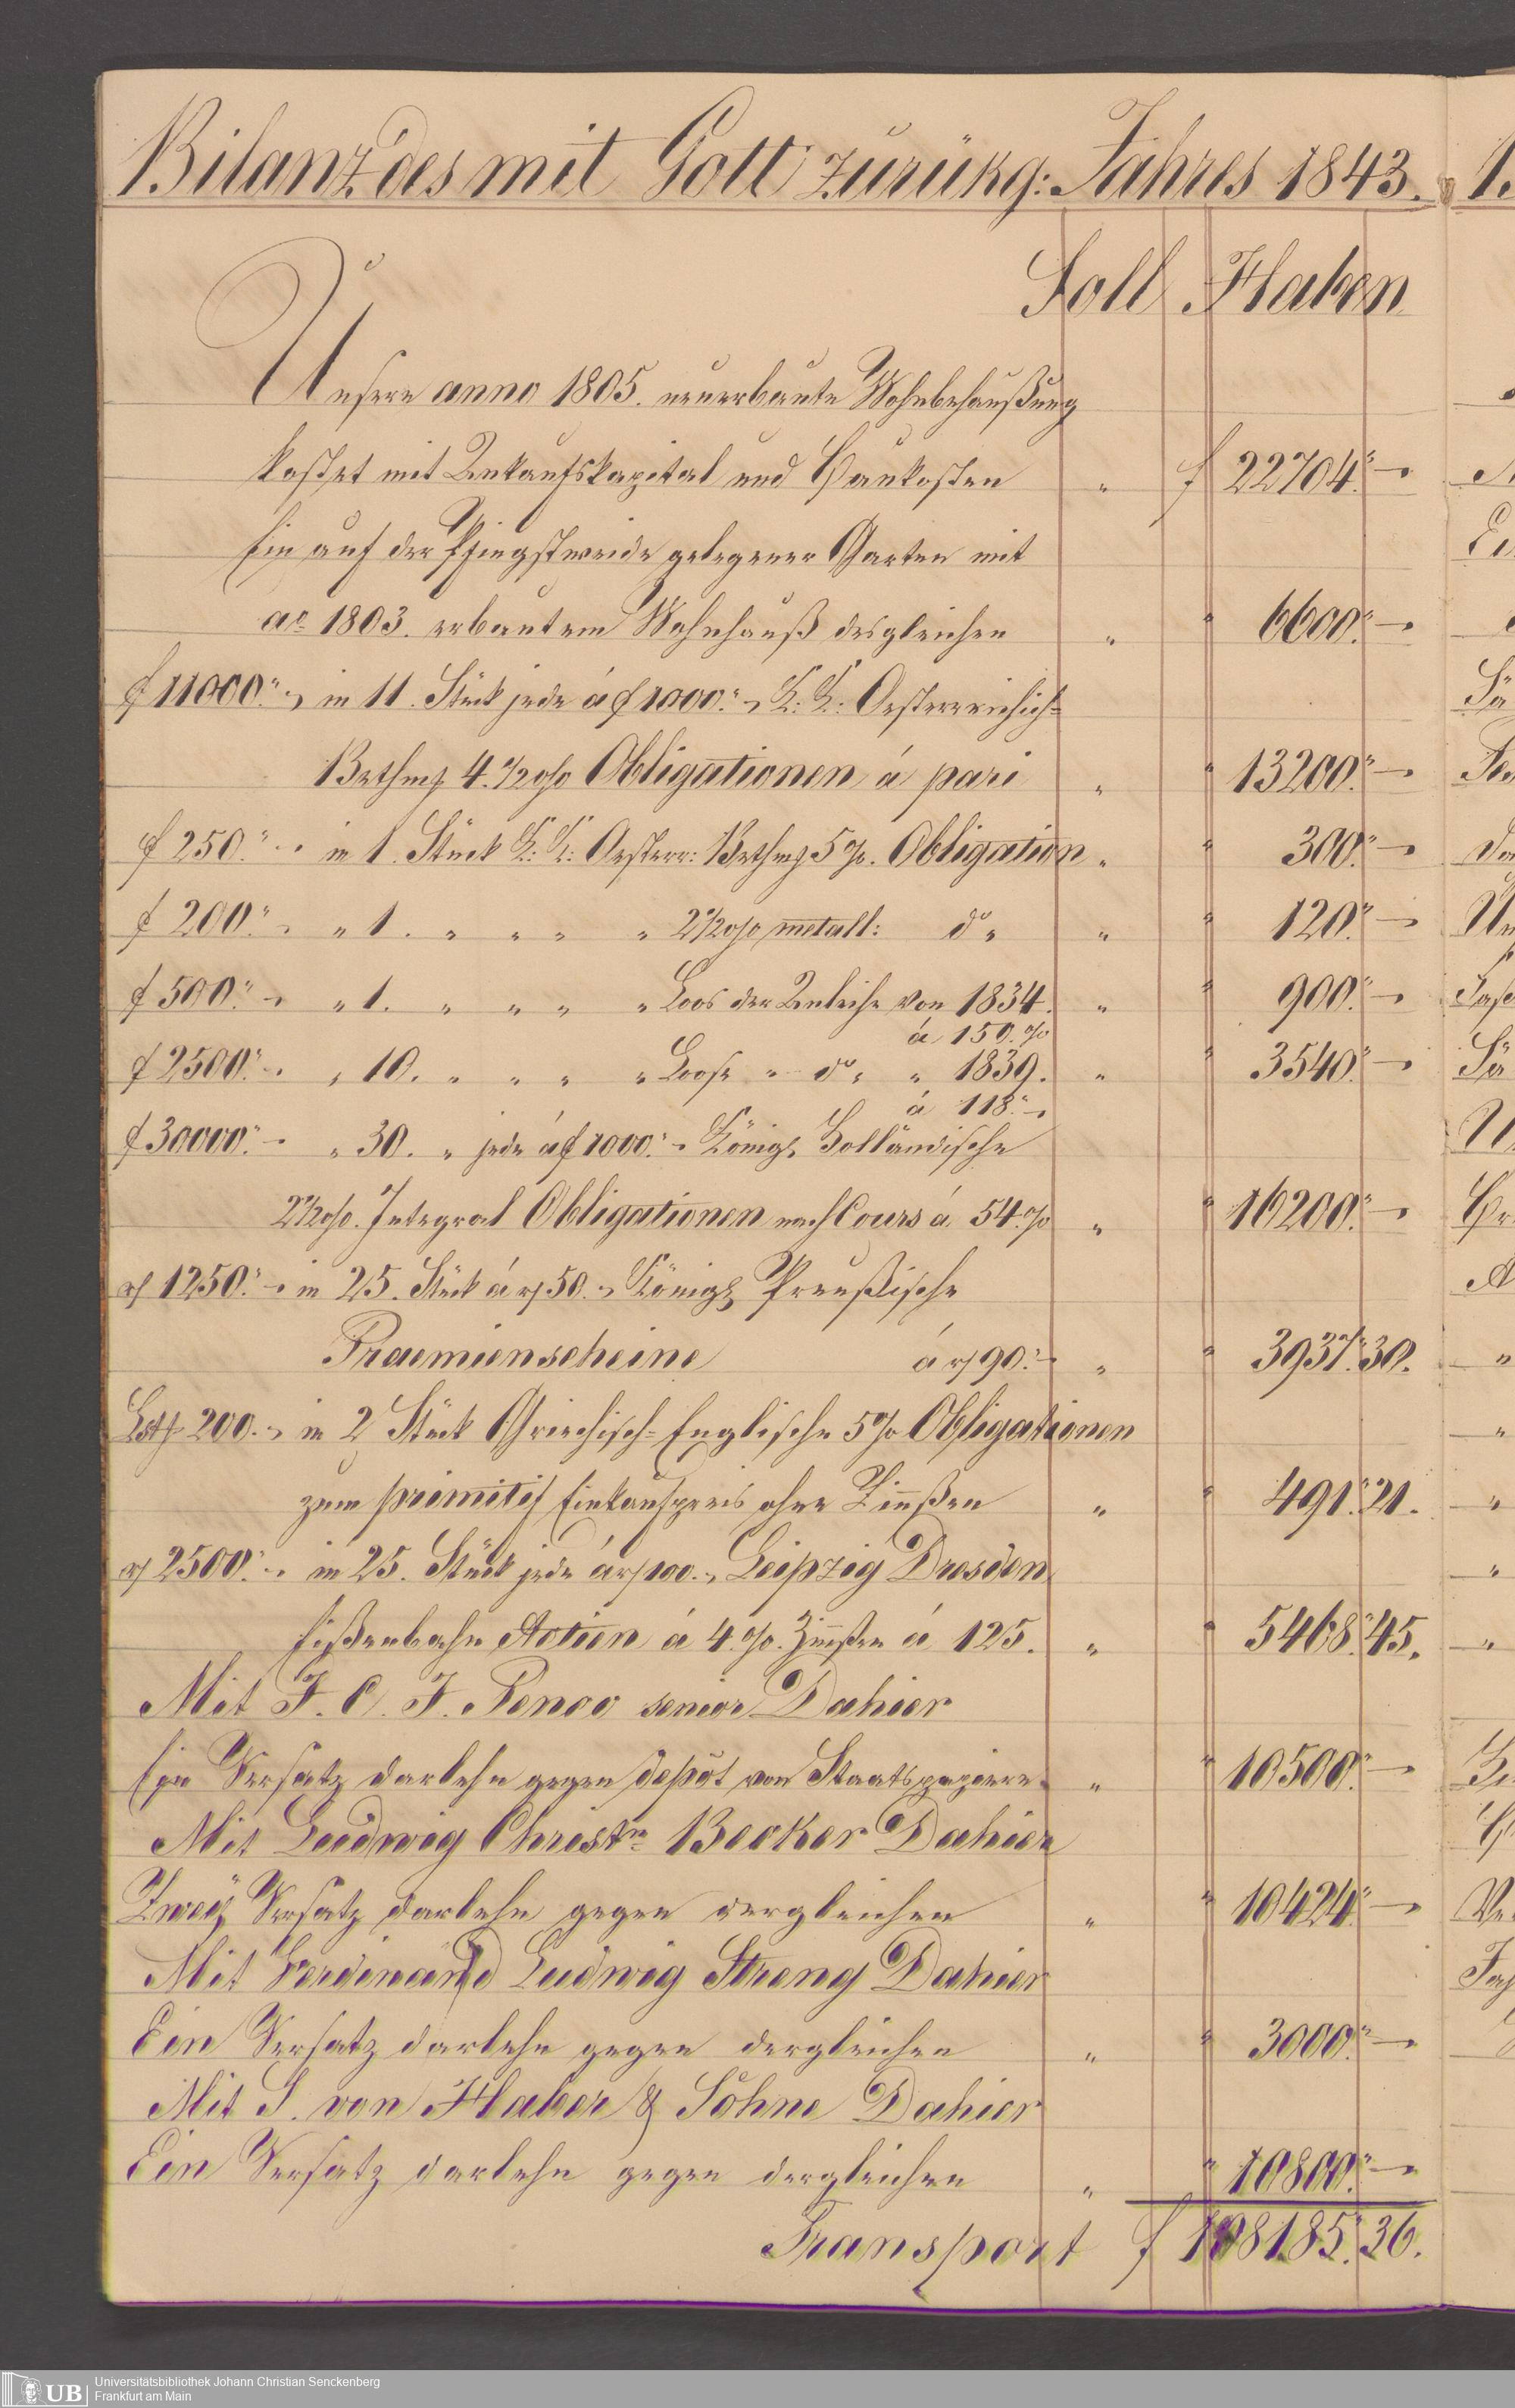 Bilanz des mit Gott zurükg: Jahres 1843.
Soll Haben
Unsere anno 1805. neuerbaute Wohnbehaußung
kostet mit Ankaufskapital und Baukosten " f 22704."–
Ein auf der Pfingstweide gelegener Garten mit
ao 1803. erbautem Wohnhauß desgleichen " " 6600."–
f 11000."– in 11. Stük jede á f 1000."– K: K: Oesterreichisch-
Bethm 4. 1/2 o/o Obligationen á pari " " 13200."–
f 250."– in 1. Stük K: K: Oesterr: Bethm 5 %. Obligation " " 300."–
f 200."– " 1. " " " " 2 1/2 o/o metall: do " " " 120."–
f 500."– " 1. " " " " Loos der Anleihe von 1834. " " 900."–
á 150. %
f 2500."– " 10. " " " " Loose " do " " 1839. " " 3540."–
á 118."–
f 30000."– " 30. " jede á f 1000."– Königl Holländische
2 1/2 o/o. Integral Obligationen nach Cours á 54. % " " 16200."–
rf 1250."– in 25. Stük á rf 50."– Königl Preußische
Praemienscheine á rf 90."– " " 3937." 30.
Lstf 200."– in 2 Stük Griechisch-Englische 5 % Obligationen
zum primitif Einkaufspreis ohne Zinßen " " 491." 21.
rf 2500."– in 25. Stük jede á rf 100."– Leipzig Dresden
Eißenbahn Actien á 4. o/o. Zinßen á 125. " " 5468." 45.
Mit J. C. J. Penco senior Dahier
Ein Versatz darlehn gegen depôt von Staatspapiere " " 10500."–
Mit Ludwig Christn Becker Dahier
Zweÿ Versatz darlehn gegen dergleichen " " 10424."–
Mit Ferdinand Ludwig Streng Dahier
Ein Versatz darlehn gegen dergleichen " " 3000."–
Mit S. von Haber & Söhne Dahier
Ein Versatz darlehn gegen dergleichen " " 10800."–
Transport f 108185." 36.
UB
Universitätsbibliothek Johann Christian Senckenberg
Frankfurt am Main